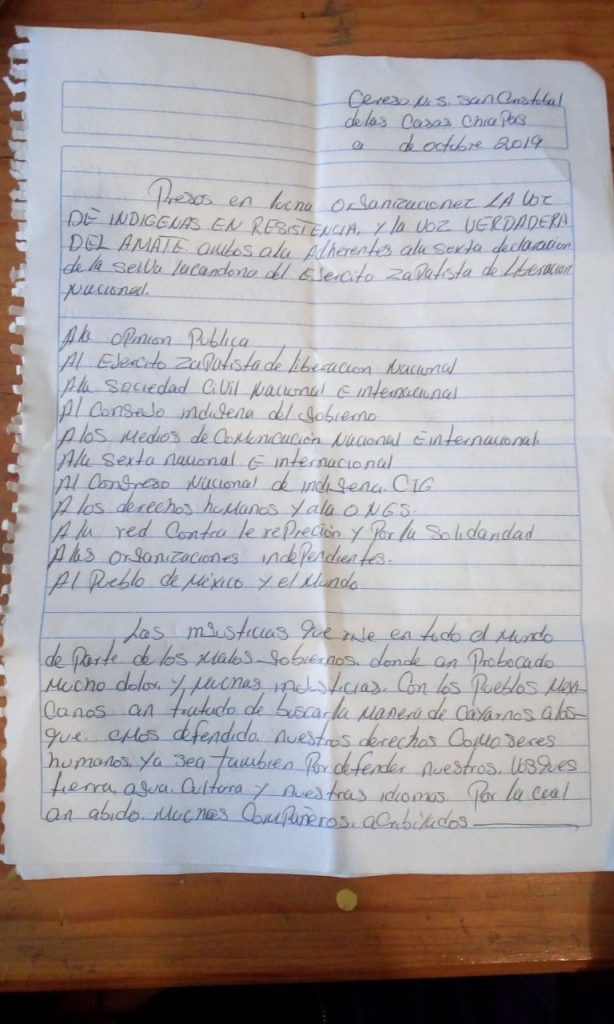 Cereso N.5. san Cristobal
de las Casas Chiapas
a de octubre 2019
Presos en lucha organizaciones LA VOZ
DE INDIGENAS EN RESISTENCIA. y la VOZ VERDADERA
DEL AMATE. ambos ala Adherentes ala sexta declaracion
de la selva lacandona del Ejercito Zapatista de liberacion
Nacional.
A la opinion Publica
Al Ejercito Zapatista de liberacion Nacional
A la sociedad Civil Nacional E internacional
Al Consejo indigena del gobierno
A los Medios de Comunicación Nacional E internacional.
A la sexta nacional E internacional
Al Congreso Nacional de indigena. CIG
A los derechos humanos y ala ONGS.
A la red Contra le repreción y Por la Solidaridad
A las organizaciones independientes.
Al Pueblo de Mexico y el Mundo
Las injusticias que rije en todo el Mundo
de parte de los Malos gobiernos. donde an Probocado
Mucho dolor. y Muchas injusticias. Con los Pueblos Mexi-
Canos an tratado de buscar la Manera de Cayarnos a los-
que. emos defendido. nuestros derechos Como seres
humanos. Ya sea tambien Por defender nuestros. bosques
tierra, agua. Cultura y nuestras idiomas. Por la cual
an abido. Muchas Compañeros. acribillados